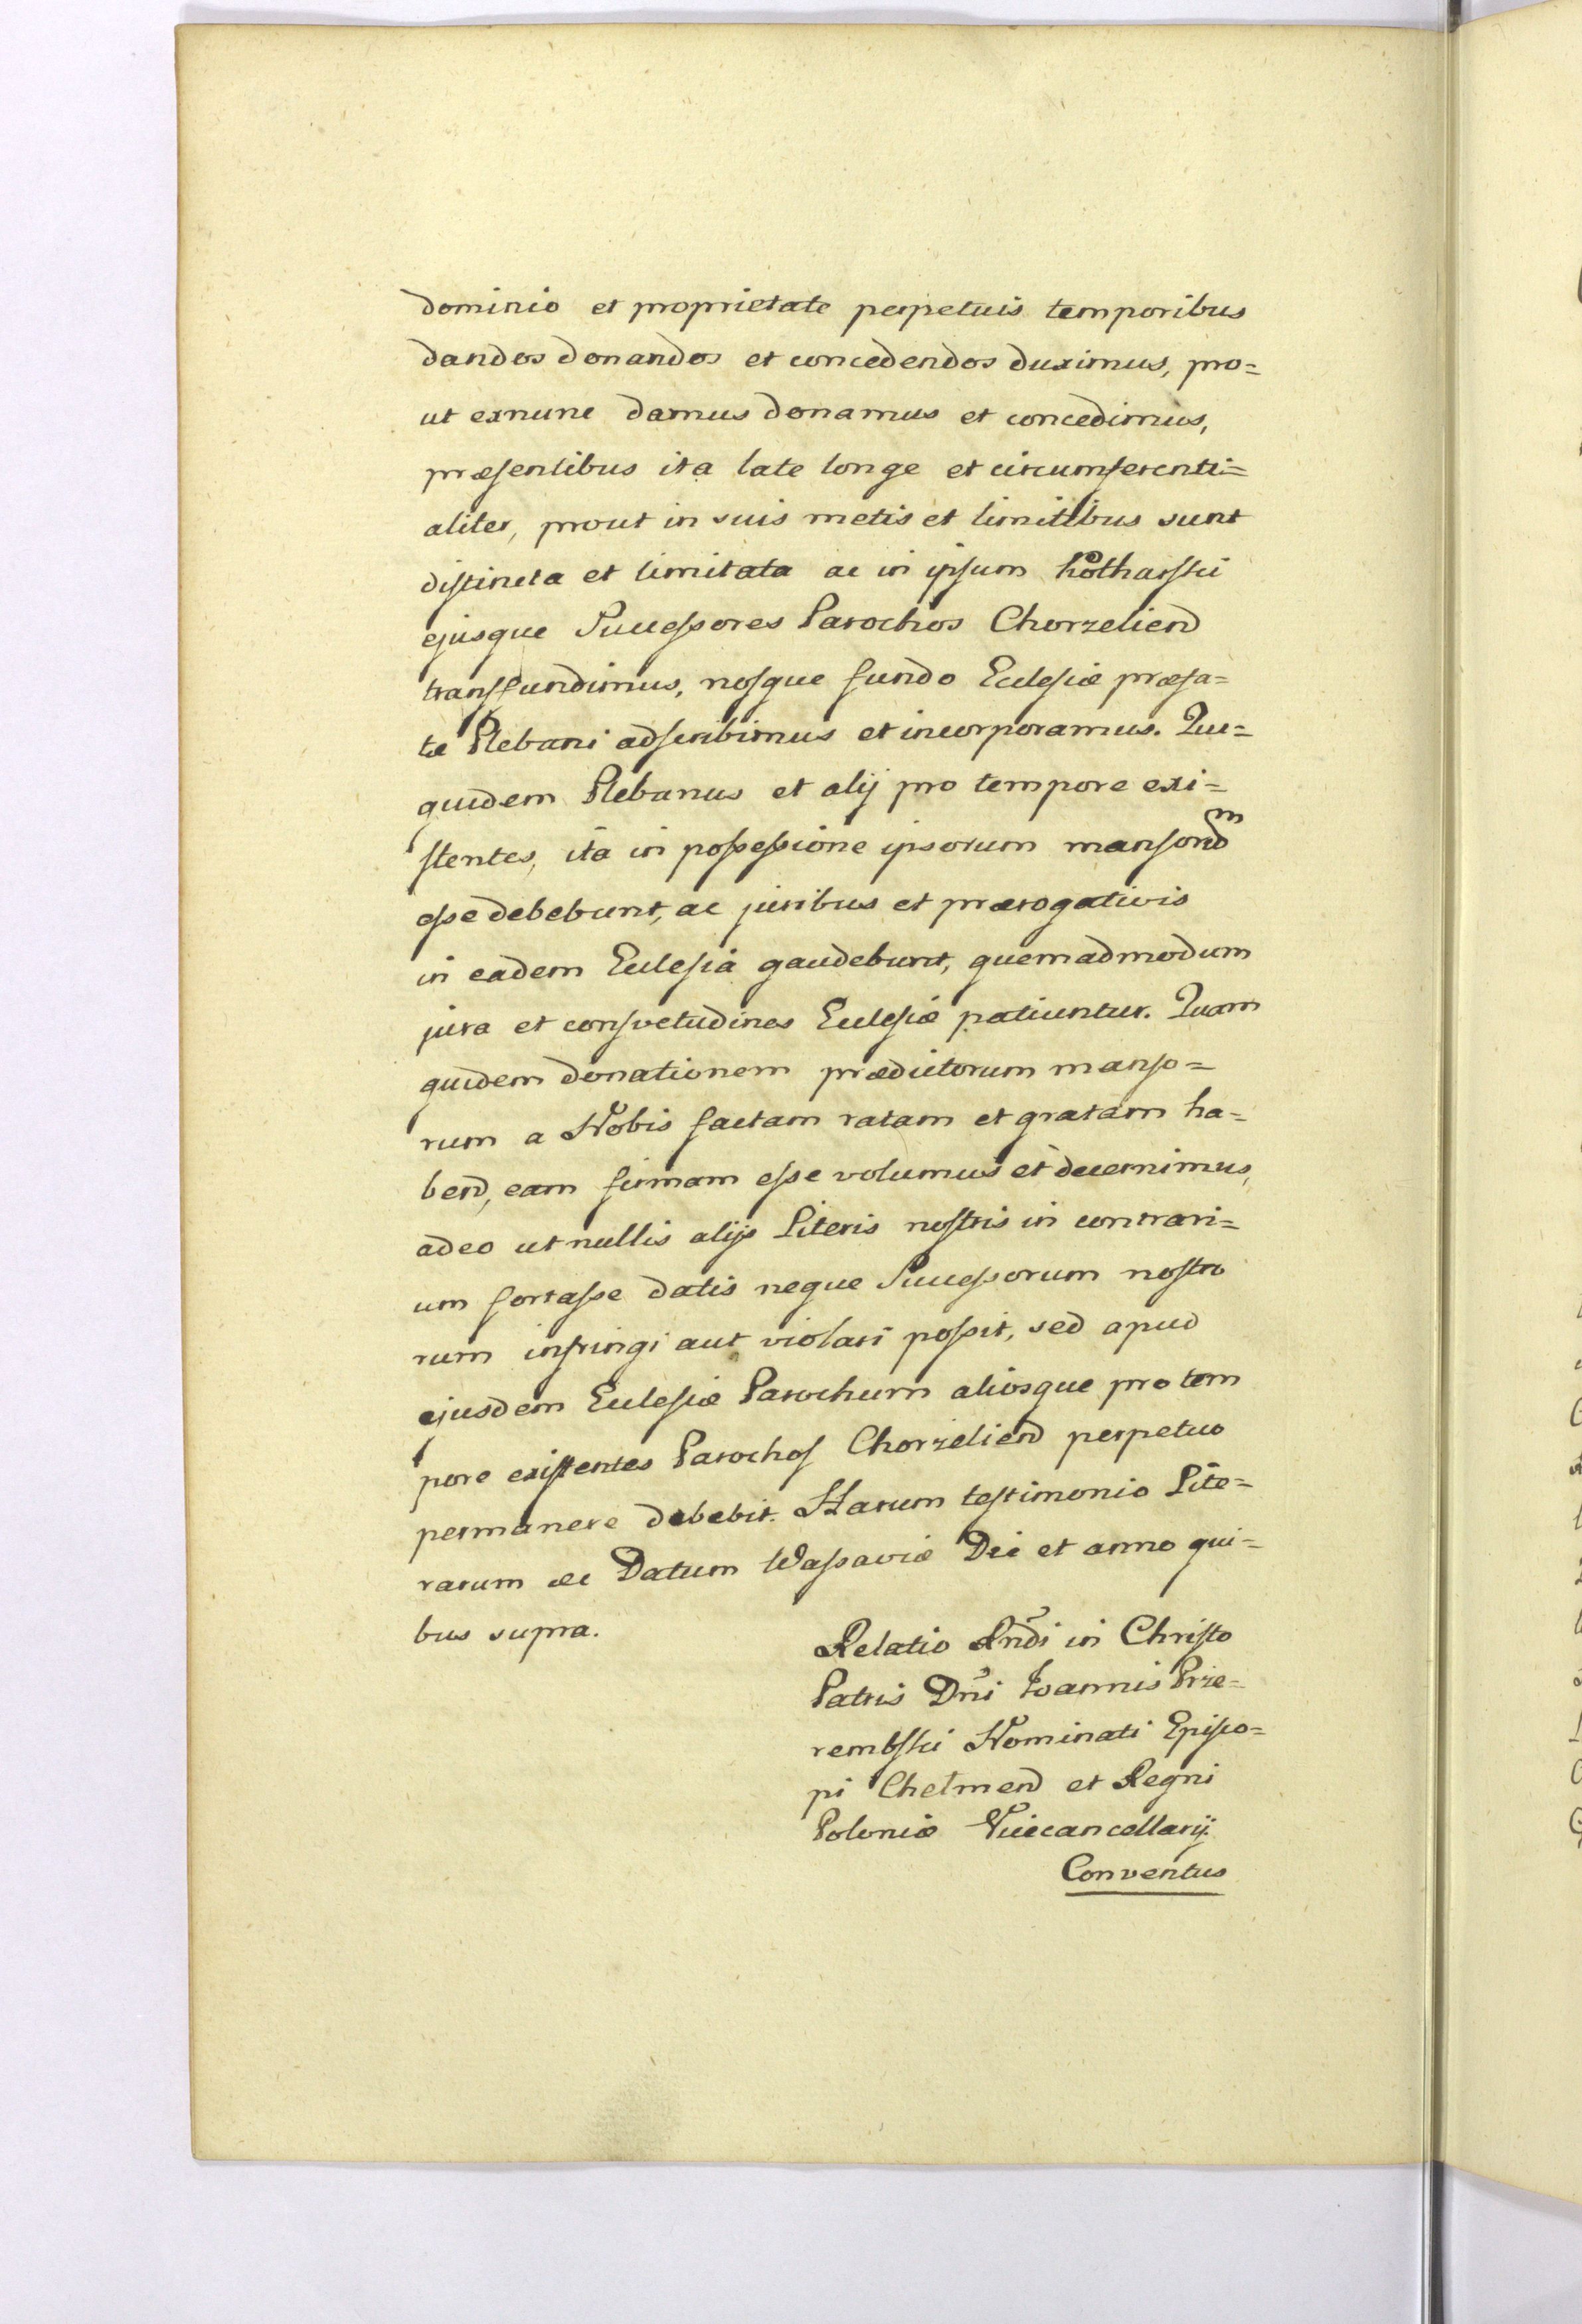 dominio et proprietate perpetuis temporibus
dandos donandos et concedendos duximus, pro=
ut exnunc damus donamus et concedimus,
præsentibus ita late longe et circumferenti=
aliter, prout in suis metis et limitibus sunt
distincta et limitata ac in ipsum Kotharski
ejusque Successores Parochos Chorzelien̄
transfundimus, nosque fundo Eclesiæ præfa=
tæ Plebani adscribimus et incorporamus. Qui=
quidem Plebanus et alij pro tempore exi=
stentes, ita in possessione ipsorum mansor̄m
esse debebunt, ac juribus et prærogativis
in eadem Eclesia gaudebunt, quemadmodum
jura et consvetudines Eclesiæ patiuntur. Quam
quidem donationem prædictorum manso=
rum a Nobis factam ratam et gratam ha=
ben̄, eam firmam esse volumus et decernimus,
adeo ut nullis alijs Literis nostris in contrari=
um fortasse datis neque Successorum nostro
rum infringi aut violari possit, sed apud
ejusdem Eclesiæ Parochum aliosque pro tem
pore existentes Parochos Chorzelien̄ perpetuo
permanere debebit. Harum testimonio Lite=
rarum ec Datum Wassaviæ Die et anno qui=
bus supra.
Relatio Rn̄di in Christo
Patris Dn̄i Joannis Prze=
rembski Nominati Episco=
pi Chełmen̄ et Regni
Poloniæ Vicecancellarij.
Conventus